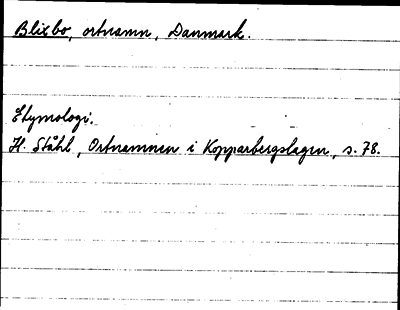 Blixbo, ortnamn, Danmark.
Etymologi.
H. Ståhl, Ortnamnen i Kopparbergslagen, s. 78.